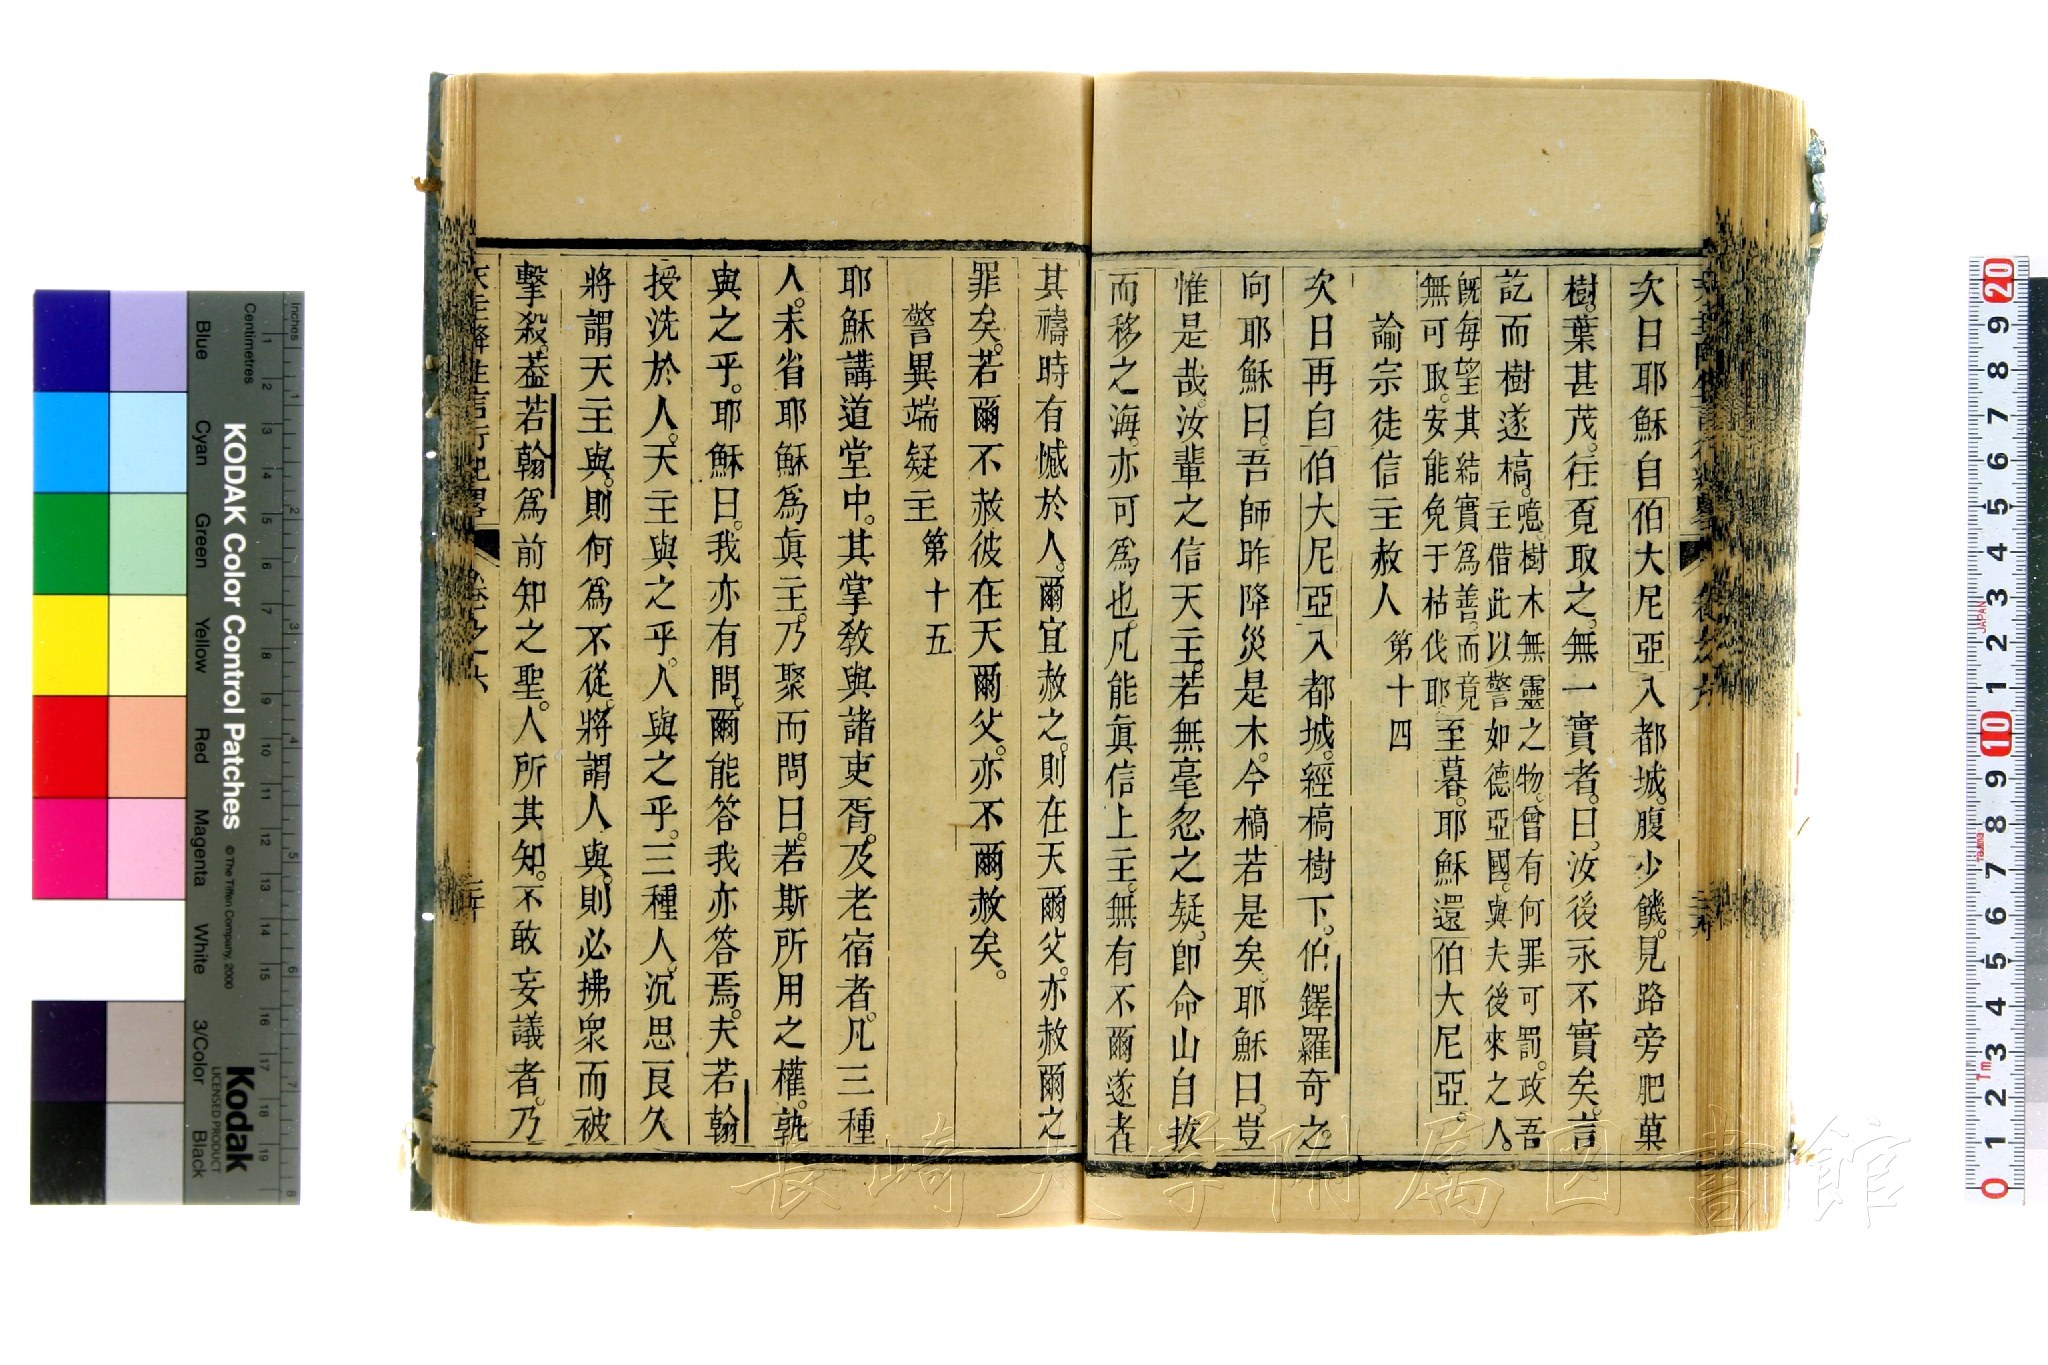 次日耶穌自伯大尼亞入都城。腹少饑。見路旁肥菓
樹。葉甚茂。往覓取之。無一實者。曰。汝後永不實矣。言
訖而樹遂槁。噫。樹木無靈之物。曾有何罪可罰。政吾
主借此以警如德亞國。與夫後來之人。
既每望其結實爲善。而竟
無可取。安能免于枯伐耶
至暮。耶穌還伯大尼亞。
諭宗徒信主赦人 第十四
次日再自伯大尼亞入都城。經槁樹下。伯鐸羅奇之。
向耶穌曰。吾師昨降災是木。今槁若是矣。耶穌曰。豈
惟是哉。汝輩之信天主。若無毫忽之疑。卽命山自拔
而移之海。亦可爲也。凡能眞信上主。無有不爾遂者
其禱時有憾於人。爾宜赦之。則在天爾父。亦赦爾之
罪矣。若爾不赦彼在天爾父。亦不爾赦矣。
警異端疑主 第十五
耶穌講道堂中。其掌敎與諸吏胥。及老宿者。凡三種
人。未省耶穌爲眞主。乃聚而問曰。若斯所用之權。孰
與之乎。耶穌曰。我亦有問。爾能答我亦答焉。夫若翰
授洗於人。天主與之乎。人與之乎。三種人。沉思良久
將謂天主與。則何爲不從。將謂人與。則必拂衆而被
擊殺。葢若翰爲前知之聖。人所其知。不敢妄議者。乃
天主降生言行紀畧 卷之六
KODAK Color Control Patches
© The Tiffen Company, 2000
Kodak
LICENSED PRODUCT
Inches
Centimetres
Blue
Cyan
Green
Yellow
Red
Magenta
White
3/Color
Black
JAPAN
長崎大学附属図書館